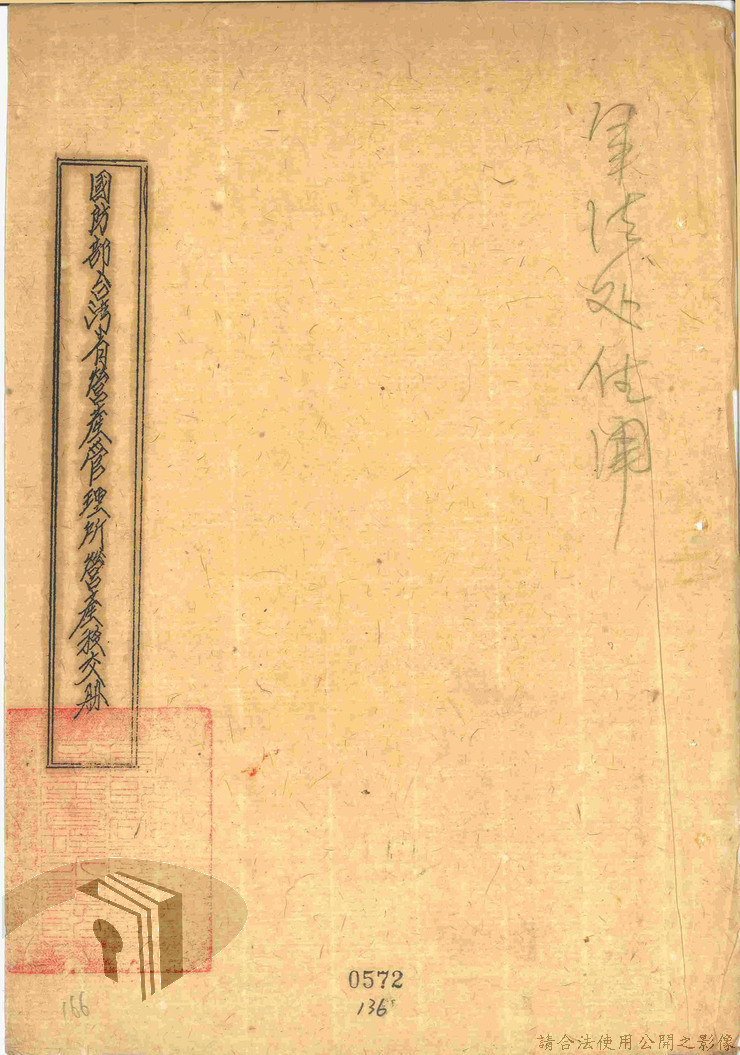 軍法处住用
國防部台湾省營産管理所營産移交册
0572
136
166
請合法使用公開之影像